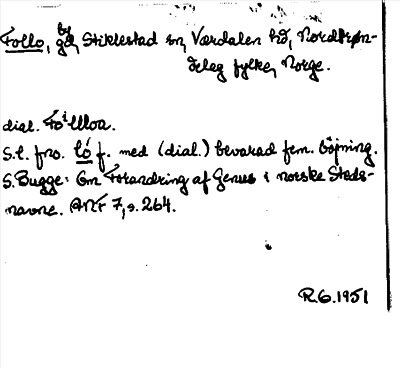 Follo, by gd, Stiklestad sn, Værdalen hd, Nordtrøn-
delag fylke, Norge.
dial. Fo`lloa.
S.l. fno. ló f. med (dial.) bevarad fem. böjning.
S. Bugge: Om Forandring af Genus i norske Steds-
navne. ANF 7, s. 264.
R.G. 1951